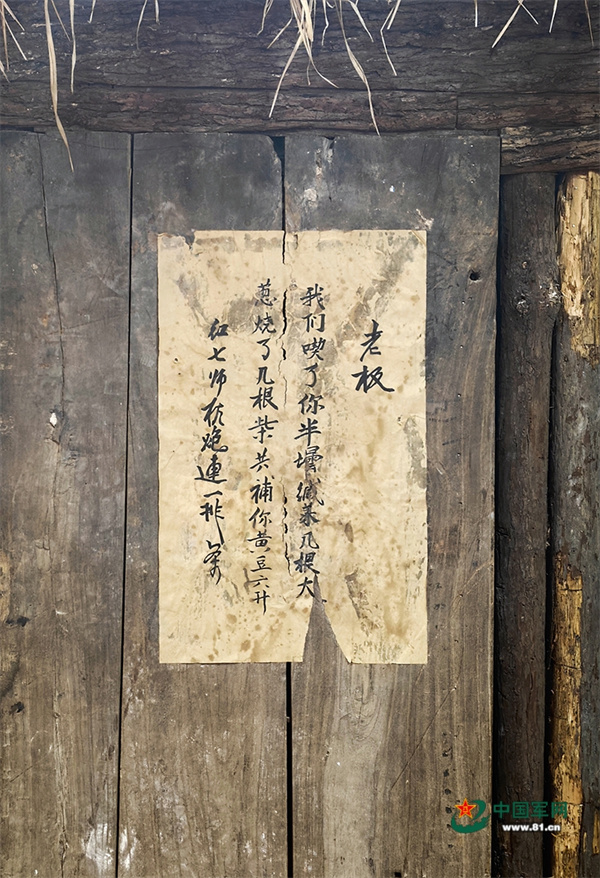 老板
我们喫了你半罎咸菜几根大
葱烧了几根柴共補你黄豆六升
红七师机炮連一排
中国军网
www.81.cn